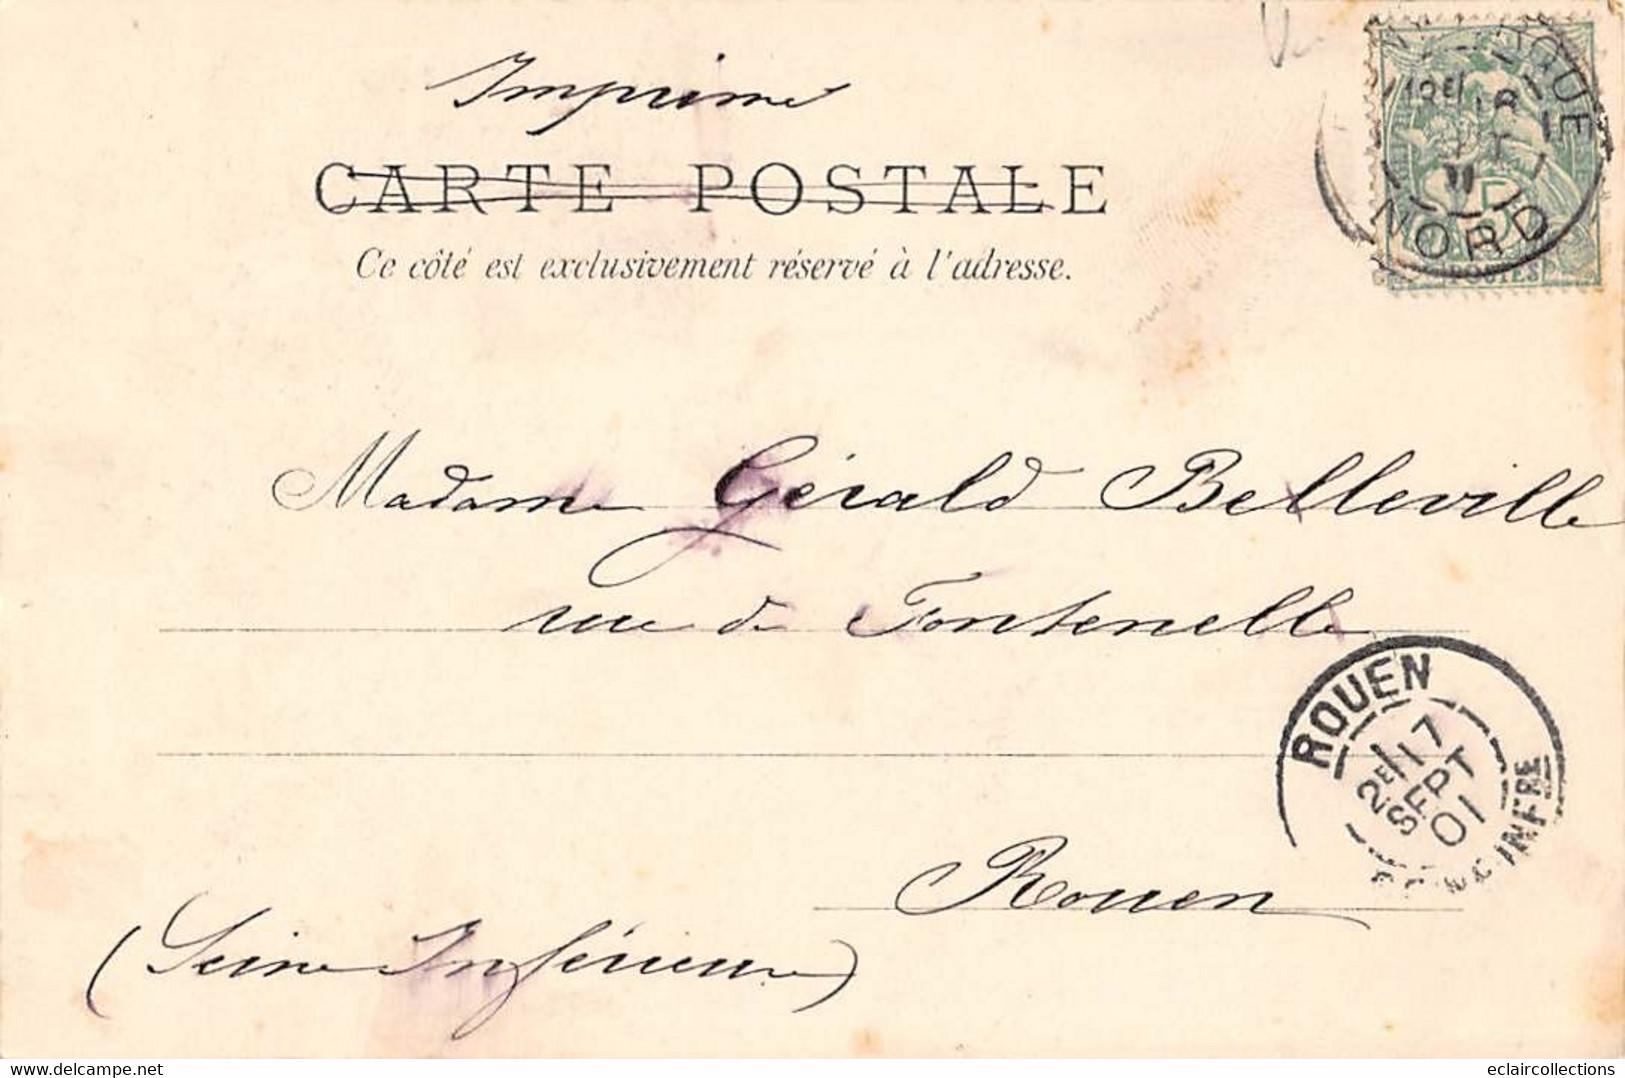 Imprimé
CARTE POSTALE
Ce côté est exclusivement réservé à l'adresse.
NORD
5
POSTES
Madame Gérald Belleville
rue de Fontenelle
ROUEN
2E 17
SEPT
01
INFRE
Rouen
(Seine Inférieure)
delcampe.net
eclaircollections